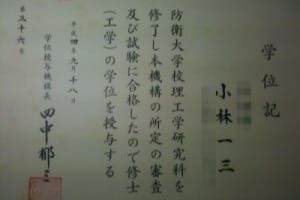 学位記
小林一三
防衛大学校理工学研究科を
修了し本機構の所定の審査
及び試験に合格したので修士
(工学)の学位を授与する
平成四年九月十八日
学位授与機構長
田中郁三
第三十六号